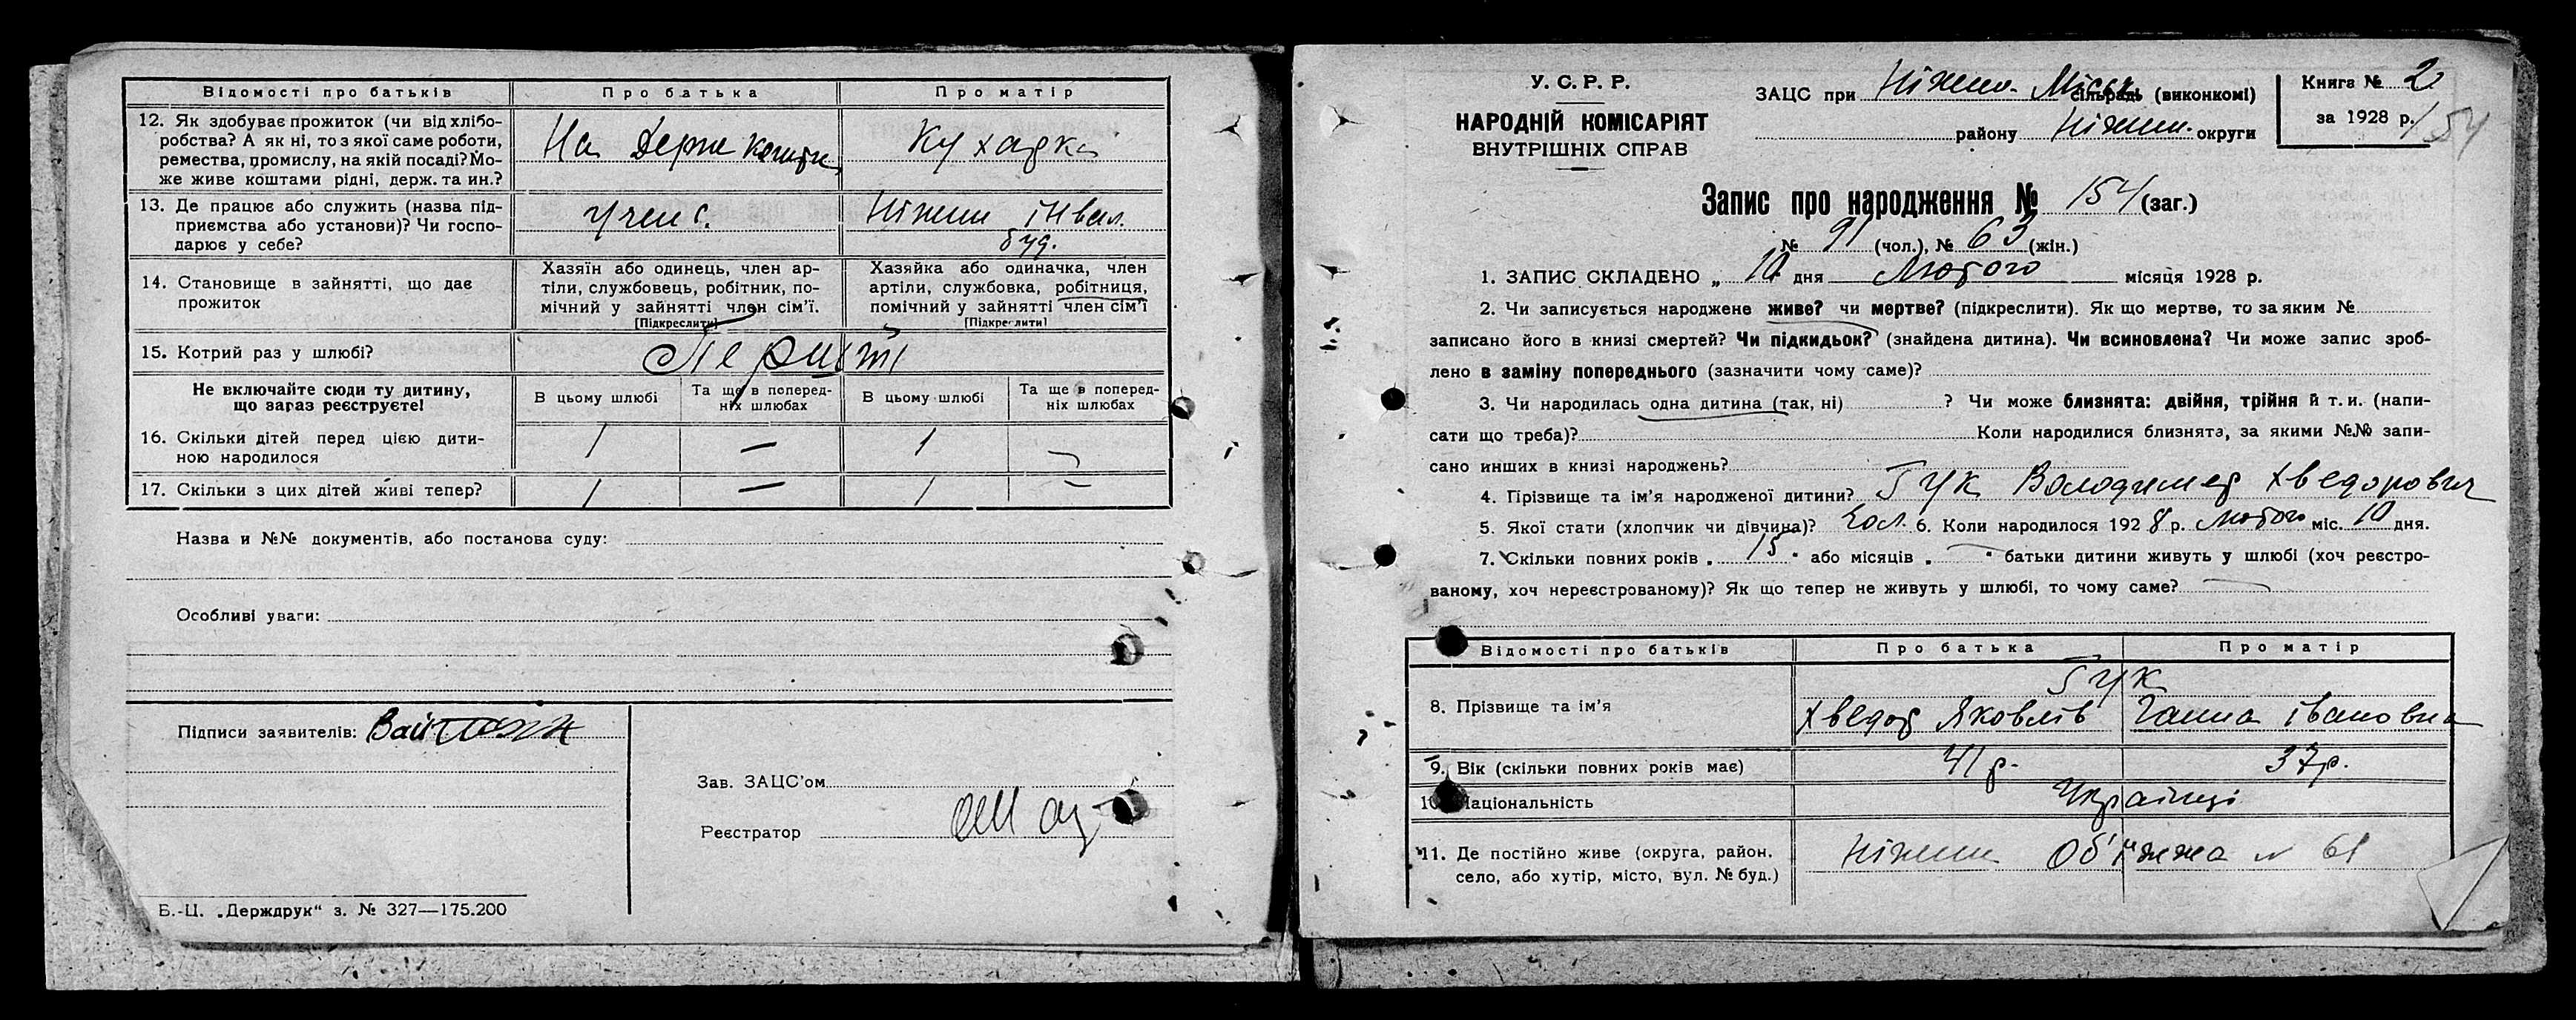 Відомості про батьків Про батька Про матір
12. Як здобуває прожиток (чи від хлібо-
робства? А як ні, то з якої саме роботи,
ремества, промислу, на якій посаді? Мо-
же живе коштами рідні, держ. та ин.?
На Держ кошти
Кухарка
13. Де працює або служить (назва під-
приємства або установи)? Чи госпо-
дарює у себе?
Ніжин інвал.
буд.
14. Становище в зайнятті, що дає
прожиток
Хазяїн або одинець, член ар-
тіли, службовець, робітник, по-
мічний у зайнятті член сім'ї.
[Підкреслити]
Хазяйка або одиначка, член
артіли, службовка, робітниця,
помічний у зайнятті член сім'ї
[Підкреслити]
15. Котрий раз у шлюбі?
Перший
Не включайте сюди ту дитину,
що зараз реєструєте!
В цьому шлюбі
Та ще в поперед-
ніх шлюбах
В цьому шлюбі
Та ще в поперед-
ніх шлюбах
16. Скільки дітей перед цією дити-
ною народилося
1 — 1 —
17. Скільки з цих дітей живі тепер?
1 — 1 —
Назва и №№ документів, або постанова суду:
Особливі уваги:
Підписи заявителів:
Зав. ЗАЦС'ом
Реєстратор
Б.-Ц. „Держдрук“ з. № 327—175.200
У. С. Р. Р.
НАРОДНІЙ КОМІСАРІЯТ
ВНУТРІШНІХ СПРАВ
ЗАЦС при Ніжин. Міськ сільраді (виконкомі)
району Ніжин. округи
Книга № 2
за 1928 р.
154
Запис про народження № 154 (заг.)
№ 91 (чол.), № 63 (жін.)
1. ЗАПИС СКЛАДЕНО „ 10 дня Лютого місяця 1928 р.
2. Чи записується народжене живе? чи мертве? (підкреслити). Як що мертве, то за яким №
записано його в книзі смертей? Чи підкидьок? (знайдена дитина). Чи всиновлена? Чи може запис зроб-
лено в заміну попереднього (зазначити чому саме)?
3. Чи народилась одна дитина (так, ні) ? Чи може близнята: двійня, трійня й т. и. (напи-
сати що треба)? Коли народилися близнята, за якими №№ запи-
сано инших в книзі народжень?
4. Прізвище та ім'я народженої дитини? Гук Володимер Хведорович
5. Якої стати (хлопчик чи дівчина)? Чол. 6. Коли народилося 1928 р. Лютого міс. 10 дня.
7. Скільки повних років „ 15 “ або місяців „ — “ батьки дитини живуть у шлюбі (хоч реєстро-
ваному, хоч нереєстрованому)? Як що тепер не живуть у шлюбі, то чому саме? —
Відомості про батьків Про батька Про матір
Гук
8. Прізвище та ім'я
Хведор Яковлів Ганна Івановна
9. Вік (скільки повних років має) 41 р. 37 р.
10. Національність Українці
11. Де постійно живе (округа, район,
село, або хутір, місто, вул. № буд.)
Ніжин Об'їжжа № 61